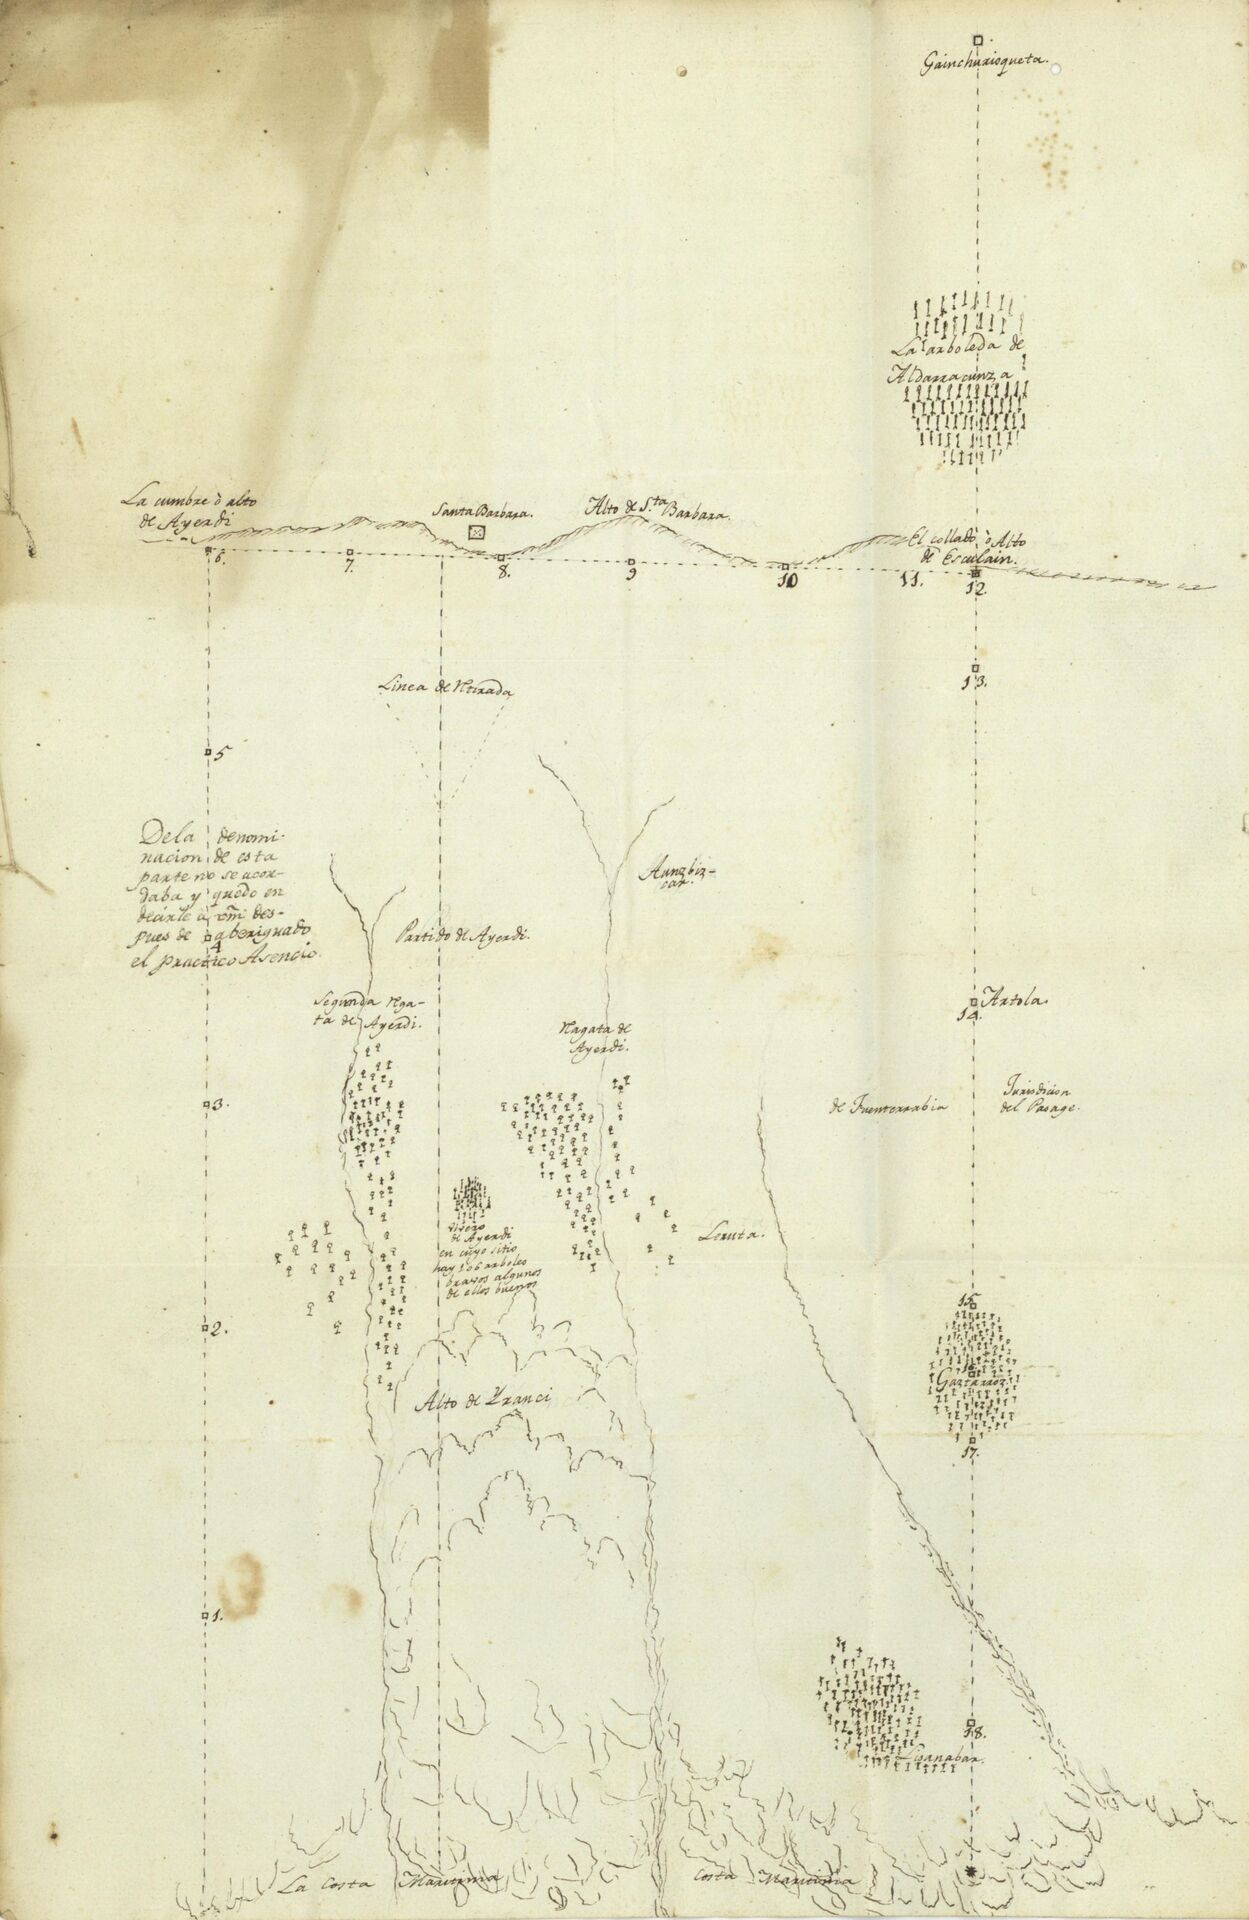 Gainchurisqueta.
La arboleda de
Aldarracunza
La cumbre ò alto
de Ayerdi
Santa Barbara.
Alto de S.ta Barbara.
El collado, ò Alto
de Esculain.
6.
7.
8.
9
10
11.
12.
13.
Linea de Retirada
5
De la denomi-
nacion de esta
parte no se acor-
daba y quedo en
decirle a Vm des-
pues de aberiguado
4
el practico Asencio
Aunzbiz-
car.
Partido de Ayerdi.
Segunda Rga-
ta de Ayerdi.
Ragata de
Ayerdi.
Artola.
14.
3.
de Fuenterrabia
Jurisdicion
del Pasage.
de Ayerdi
en cuyo sitio
hay 106 arboles
bravos algunos
de ellos buenos
Loruta.
2.
15
16
Gaztarroz
17.
Alto de Yranci
1.
18.
Lisanabar.
La Costa Maritima
Costa Maritima